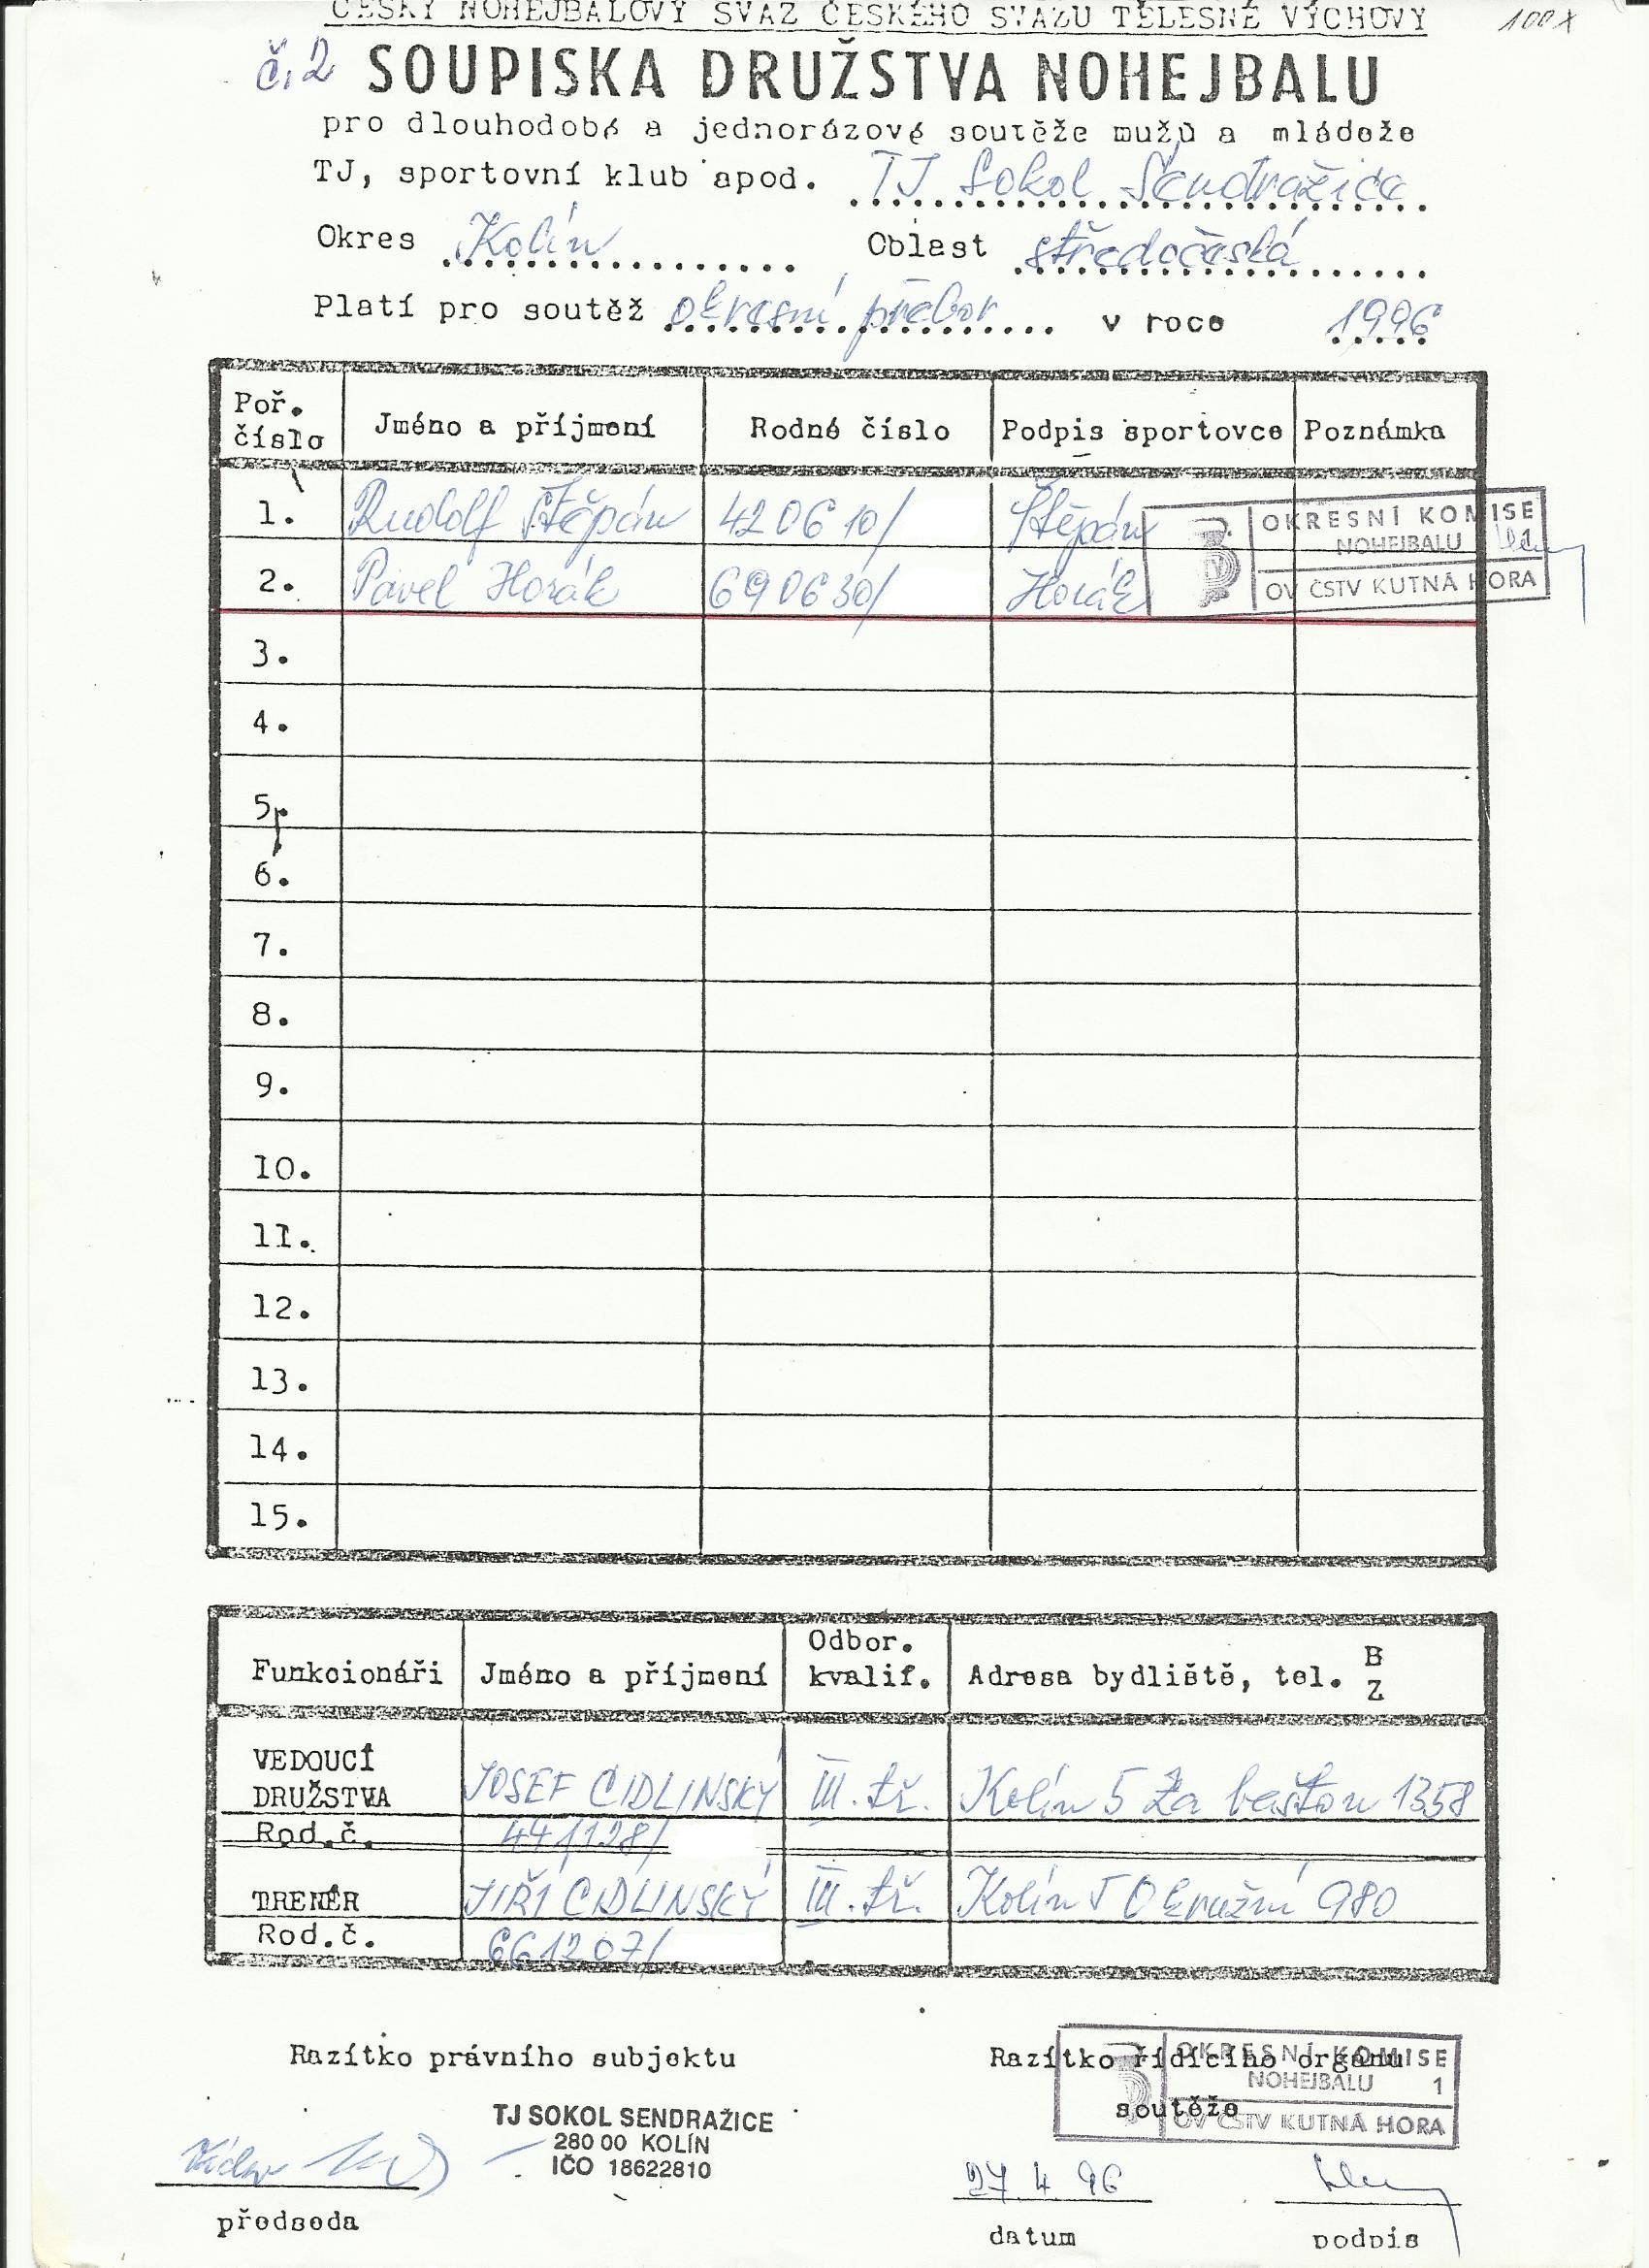 ČESKÝ NOHEJBALOVÝ SVAZ ČESKÉHO SVAZU TĚLESNÉ VÝCHOVY
100x
č.2 SOUPISKA DRUŽSTVA NOHEJBALU
pro dlouhodobé a jednorázové soutěže mužů a mládeže
TJ, sportovní klub apod. TJ Sokol Sendražice
Okres Kolín Oblast středočeská
Platí pro soutěž okresní přebor v roce 1996
Poř. číslo Jméno a příjmení Rodné číslo Podpis sportovce Poznámka
1. Rudolf Štěpán 420610/ Štěpán
2. Pavel Horák 690630/ Horák
OKRESNÍ KOMISE
NOHEJBALU 1
OV ČSTV KUTNÁ HORA
3.
4.
5.
6.
7.
8.
9.
10.
11.
12.
13.
14.
15.
Funkcionáři Jméno a příjmení Odbor. kvalif. Adresa bydliště, tel. B Z
VEDOUCÍ DRUŽSTVA JOSEF CIDLINSKÝ III. tř. Kolín 5 Za baštou 1358
Rod.č. 441128/
TRENÉR JIŘÍ CIDLINSKÝ III. tř. Kolín 5 Okružní 980
Rod.č. 661207/
Razítko právního subjektu Razítko řídícího orgánu
soutěže
OKRESNÍ KOMISE
NOHEJBALU 1
OV ČSTV KUTNÁ HORA
TJ SOKOL SENDRAŽICE
280 00 KOLÍN
IČO 18622810
27. 4. 96
předseda datum podpis